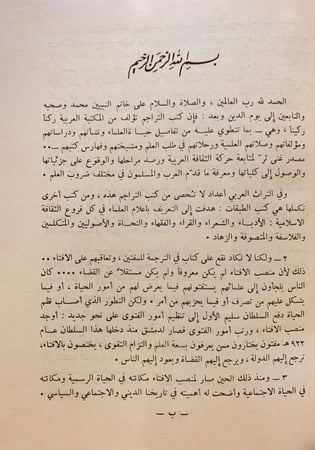 بسم الله الرحمن الرحيم
الحمد لله رب العالمين، والصلاة والسلام على خاتم النبيين محمد وصحبه
والتابعين إلى يوم الدين وبعد : فإن كتب التراجم تؤلف من المكتبة العربية ركنا
ركينا، وهي ــ بما تنطوي عليه من تفاصيل حياة العلماء ونشأتهم ودراساتهم
ومؤلفاتهم وصلاتهم العلمية ورحلاتهم في طلب العلم ومشيختهم وفهارس كتبهم ــ
مصدر غني ثر لمتابعة حركة الثقافة العربية ورصد مراحلها والوقوع على جزئياتها
والوصول إلى كلياتها ومعرفة ما قدم العرب والمسلمون في مختلف ضروب العلم ٠
وفي التراث العربي أعداد لا تحصى من كتب التراجم هذه، ومن كتب أخرى
تكملها هي كتب الطبقات : هدفت إلى التعريف بأعلام العلماء في كل فروع الثقافة
الاسلامية : الأدباء والشعراء والقراء والفقهاء والنحاة والأصوليين والمتكلمين
والفلاسفة والمتصوفة والزهاد ٠
٢ ــ ولكننا لا نكاد نقع على كتاب في الترجمة للمفتين، وتعاقبهم على الافتاء ٠
ذلك لأن منصب الافتاء لم يكن معروفا ولم يكن مستقلا عن القضاء ٠٠٠٠ كان
الناس يلجأون إلى علمائهم يستفتونهم فيما يعرض لهم من أمور الحياة، أو فيما
يشكل عليهم من تصرف أو فيما يحزبهم من أمر ٠ ولكن التطور الذي أصاب نظم
الحياة دفع السلطان سليم الأول إلى تنظيم أمور الفتوى على نحو جديد : أوجد
منصب الافتاء، ورتب أمور الفتوى فصار لدمشق منذ دخلها هذا السلطان عام
٩٢٢ هـ مفتون يختارون ممن يعرفون بسعة العلم والتزام التقوى، يختصون بالافتاء،
ترجع إليهم الدولة، ويرجع إليهم القضاة ويعود إليهم الناس ٠
٣ ــ ومنذ ذلك الحين صار لمنصب الافتاء مكانته في الحياة الرسمية ومكانته
في الحياة الاجتماعية وأضحت له أهميته في تاريخنا الديني والاجتماعي والسياسي ٠
ــ ب ــ